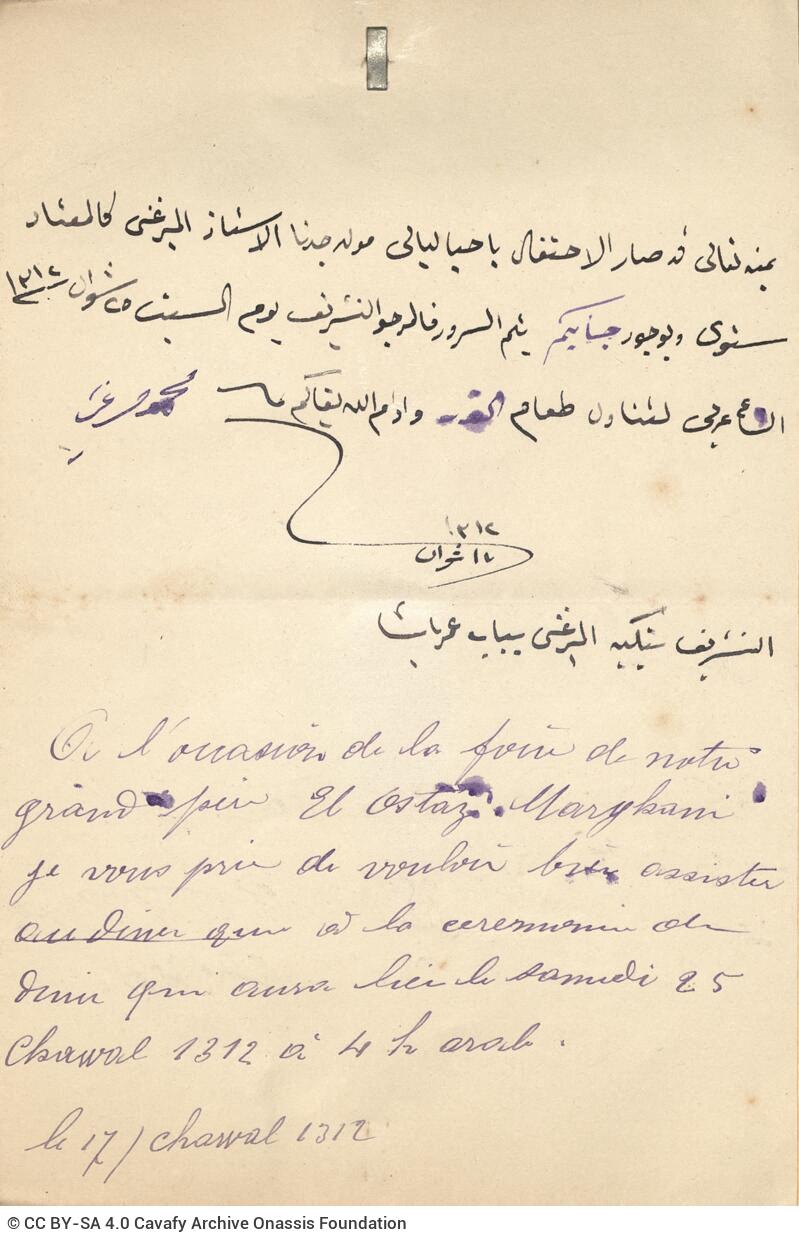 بمنه تعالى قد صار الاحتفال باحيا ليالى مولد جدنا الاستاذ الميرغنى كالمعتاد
سنوى وبوجود جنابكم يتم السرور فالمرجو التشريف يوم السبت ٢٥ شوال ١٣١٢
الساعه عربى لتناول طعام وادام الله بقاكم
١٣١٢
١٧ شوال
التشريف بتكية الميرغنى بباب عمر باشا
A l'occasion de la foire de notre
grand père El Ostaz Marghani
je vous prie de vouloir bien assister
au diner que à la ceremonie de
diner qui aura lieu le samedi 25
Chawal 1312 à 4 h arab.
le 17/ chawal 1312
© CC BY-SA 4.0 Cavafy Archive Onassis Foundation